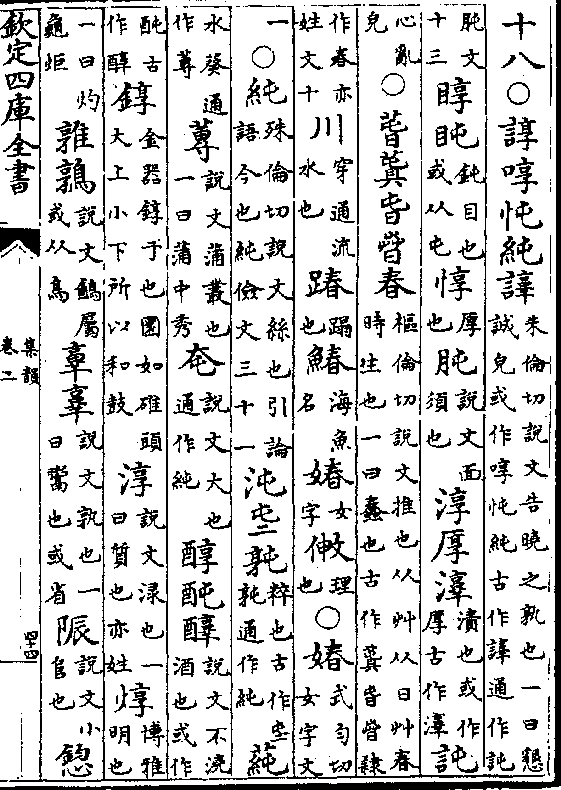 十八○諄啍忳純𧫶朱倫切說文告曉之孰也一曰懇誠皃或作啍忳純古作𧫶通作訰
肫文十三䐏盹鈍目也或从屯惇厚也肫說文面須也淳厚𣶚漬也或作厚古作𣶚訰
心亂皃○萅𦸫旾𣅱春樞倫切說文推也从艸从日艸春時生也一曰蠢也古作𦸫旾𣅱隸
作春亦姓文十川穿通流水也踳蹋也鰆海魚名媋女字㑖理也○媋式勻切女字文
一○純殊倫切說文絲也引論語今也純儉文三十一沌㹠𡦗粹也古作通作純蒓
水葵通作蓴蓴說文蒲叢也一曰蒲中秀奄說文大也通作純醇䣩醕說文不澆酒也或作
䣩古作醇錞金器錞于也圜如碓頭大上小下所以和鼓淳說文淥也一曰質也亦姓焞博雅明也
一曰灼龜炬雜鶉說文鷻屬或从鳥𦎫𦎧說文孰也一曰鬻也或省陙說文小𨸏也𢠿
欽定四庫全書
集韻卷二
四十四